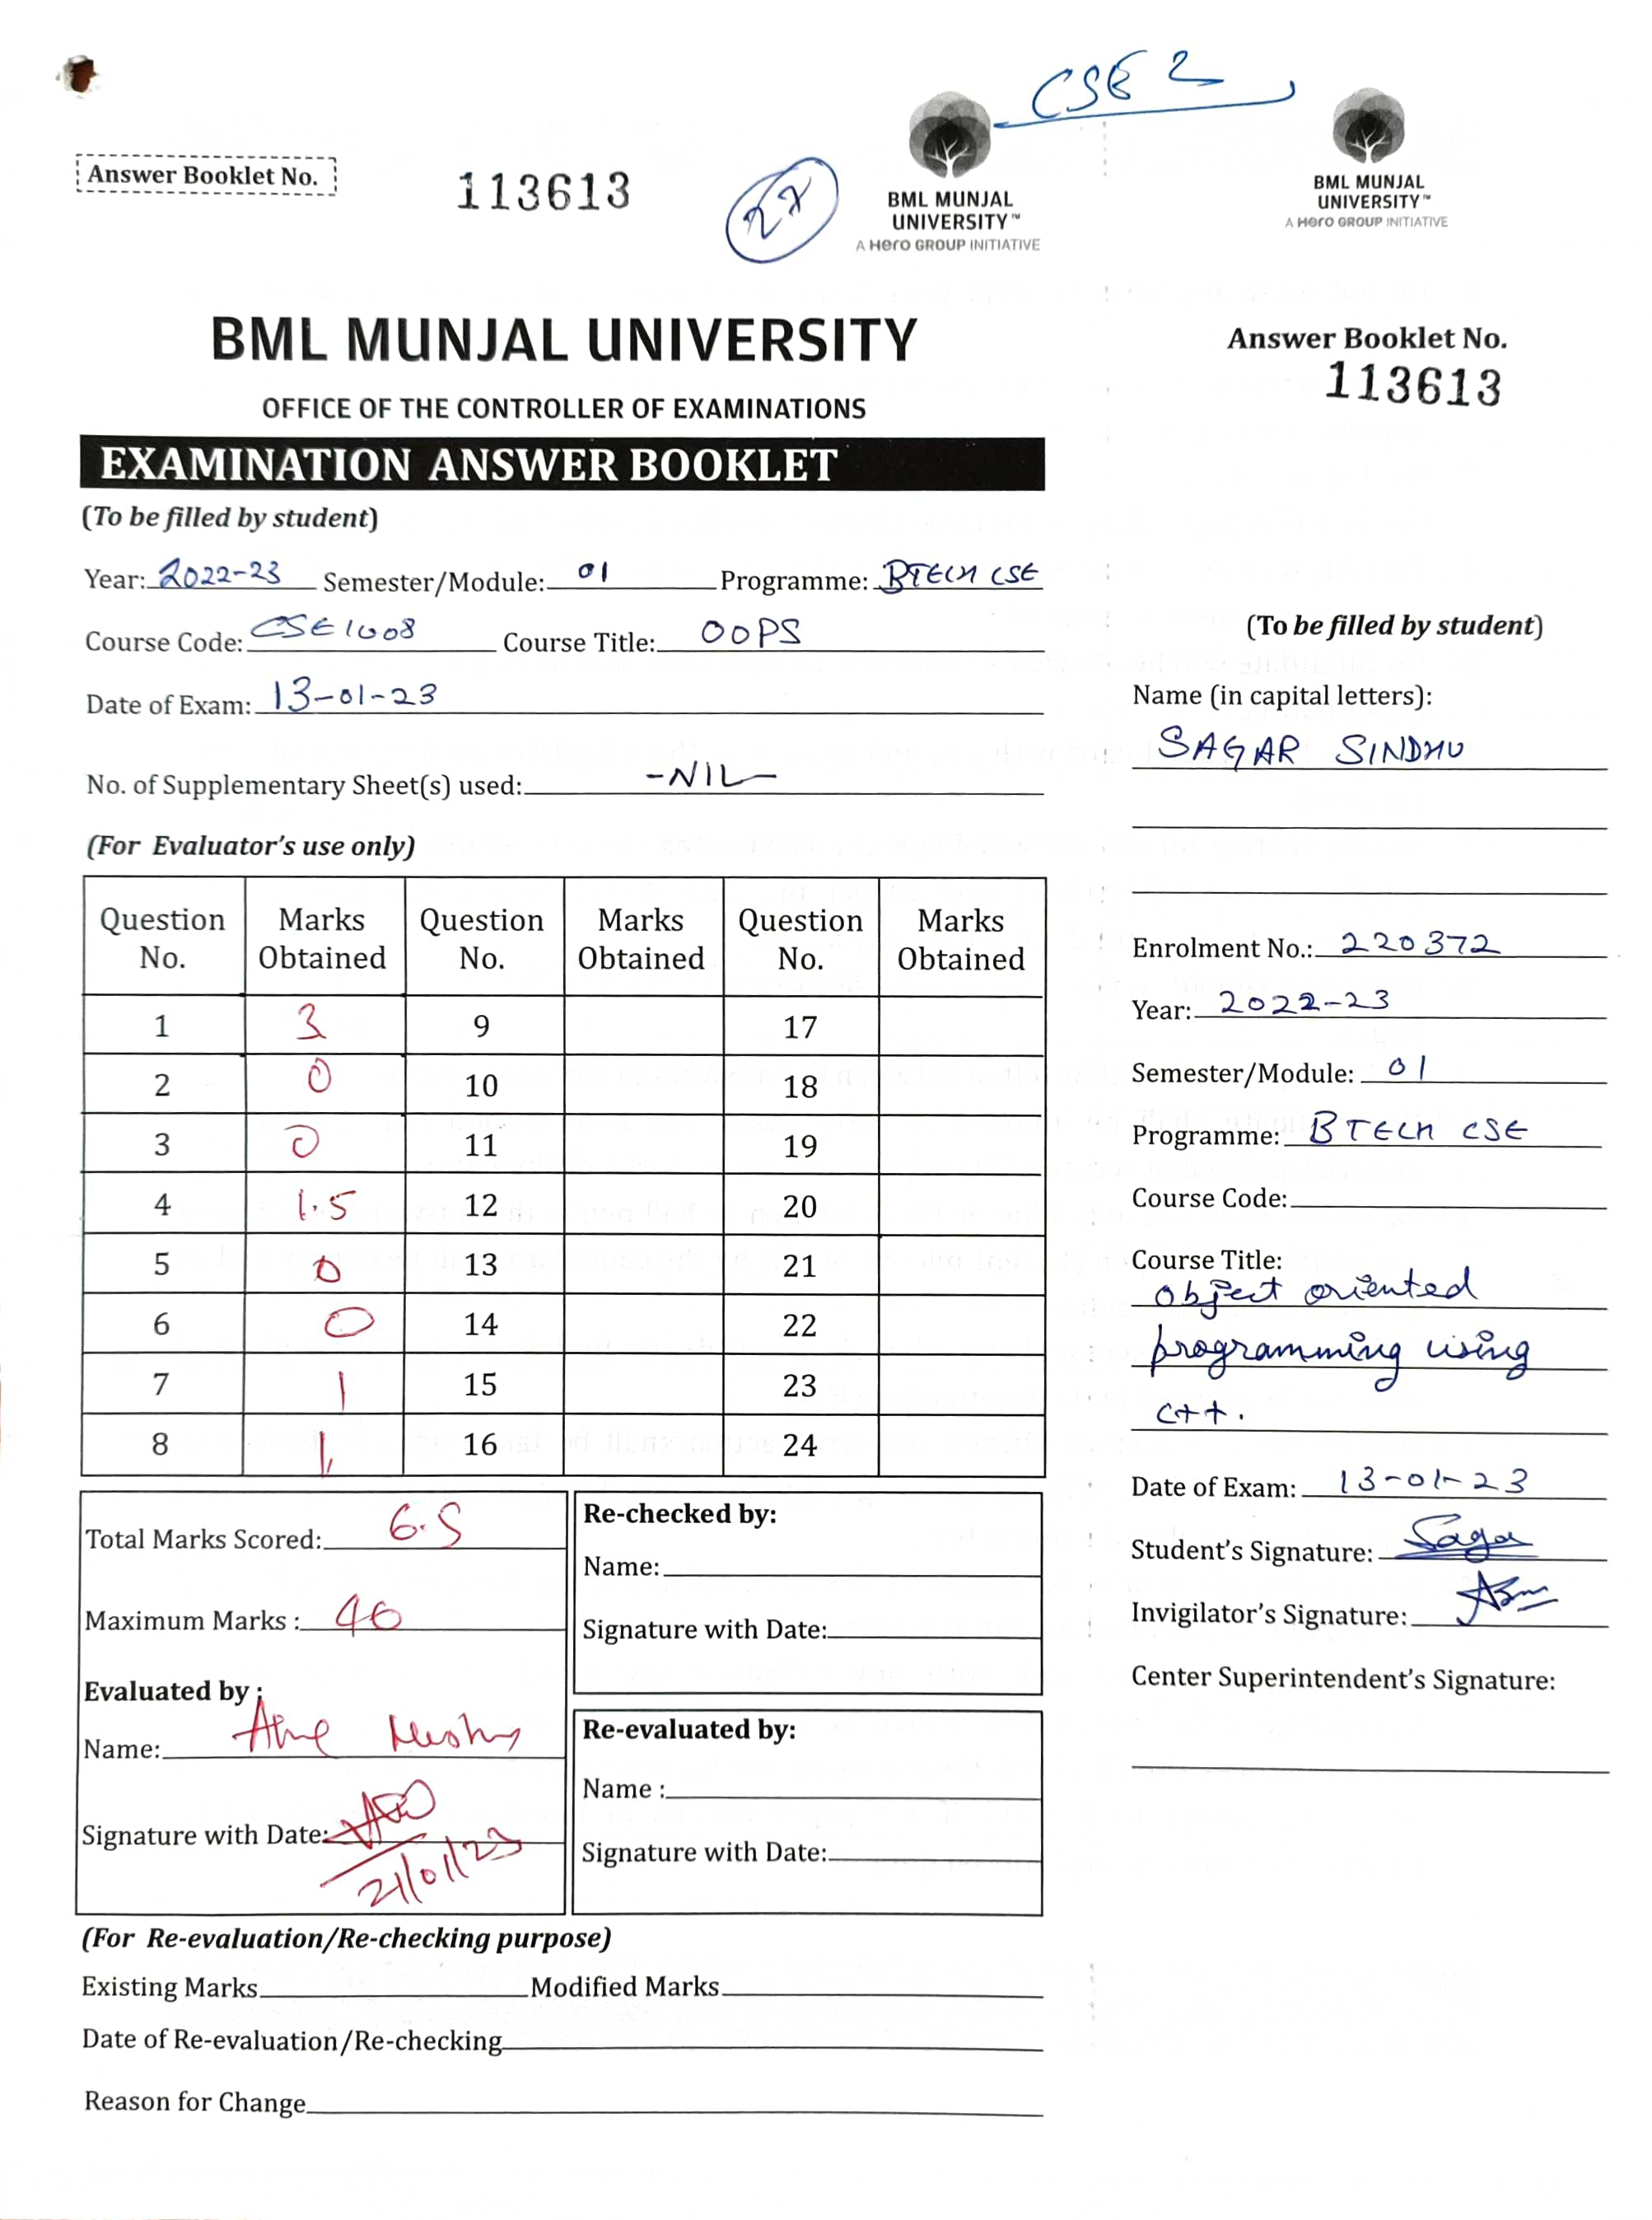 CSE 2
Answer Booklet No.
113613
BML MUNJAL
UNIVERSITY™
A Hero GROUP INITIATIVE
BML MUNJAL
UNIVERSITY™
A Hero GROUP INITIATIVE
BML MUNJAL UNIVERSITY
OFFICE OF THE CONTROLLER OF EXAMINATIONS
EXAMINATION ANSWER BOOKLET
(To be filled by student)
Year: 2022-23 Semester/Module: 01 Programme: BTECH CSE
Course Code: CSE1008 Course Title: OOPS
Date of Exam: 13-01-23
No. of Supplementary Sheet(s) used: -NIL-
(For Evaluator's use only)
Question No. Marks Obtained Question No. Marks Obtained Question No. Marks Obtained
1 3 9 17
2 0 10 18
3 0 11 19
4 1.5 12 20
5 0 13 21
6 0 14 22
7 1 15 23
8 1 16 24
Total Marks Scored: 6.5
Maximum Marks : 40
Evaluated by :
Name:
Signature with Date: 21/01/23
Re-checked by:
Name:
Signature with Date:
Re-evaluated by:
Name :
Signature with Date:
(For Re-evaluation/Re-checking purpose)
Existing Marks Modified Marks
Date of Re-evaluation/Re-checking
Reason for Change
Answer Booklet No.
113613
(To be filled by student)
Name (in capital letters):
SAGAR SINDHU
Enrolment No.: 220372
Year: 2022-23
Semester/Module: 01
Programme: BTECH CSE
Course Code:
Course Title:
object oriented
programming using
c++.
Date of Exam: 13-01-23
Student's Signature: Sagar
Invigilator's Signature:
Center Superintendent's Signature: